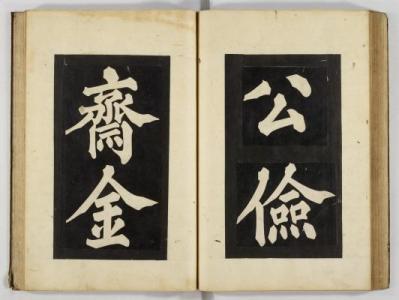 公儉
齋金